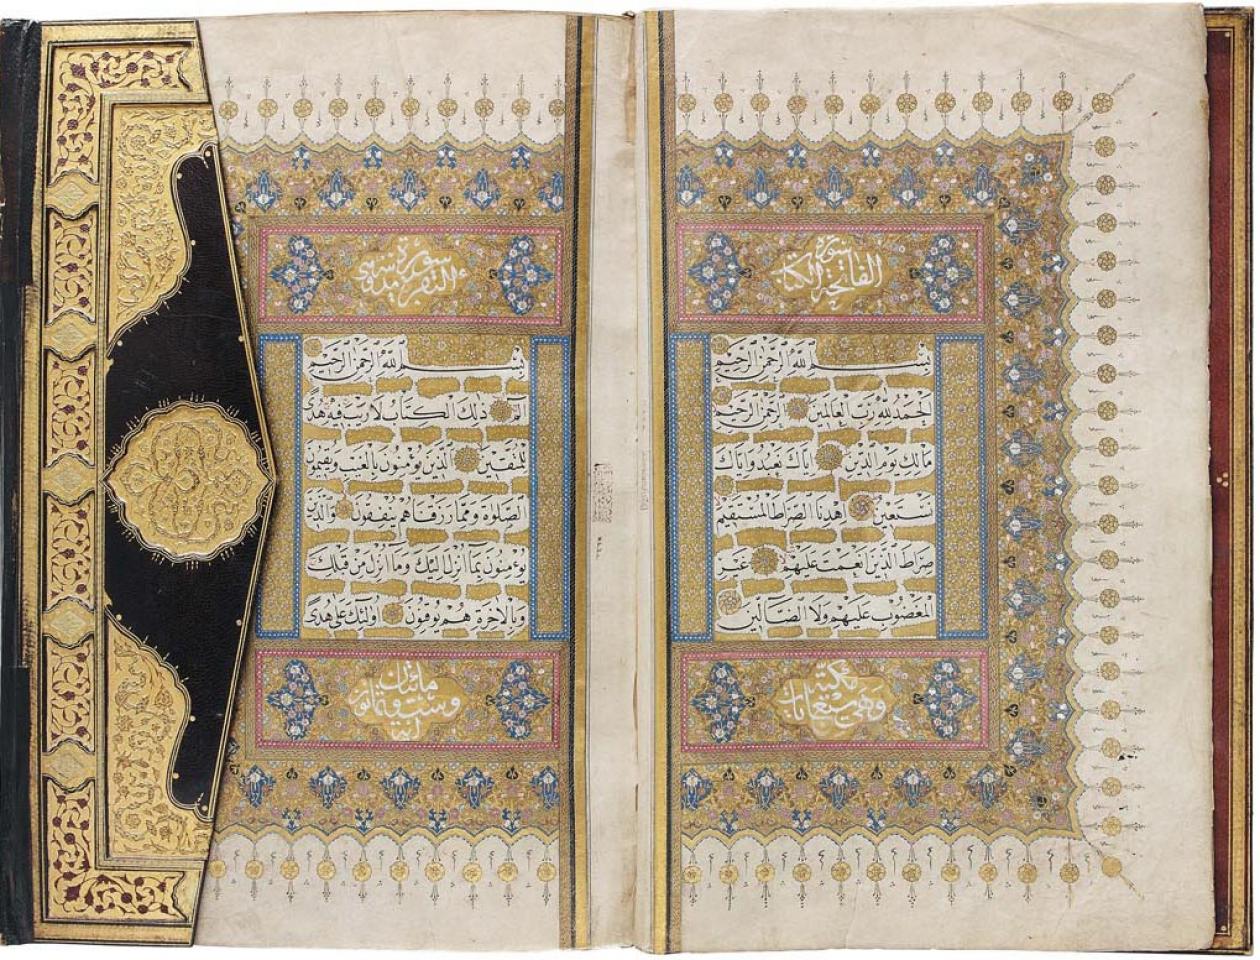 سورة
الفاتحة الكتاب
بسم الله الرحمن الرحيم
الحمد لله رب العالمين الرحمن الرحيم
مالك يوم الدين اياك نعبد واياك
نستعين اهدنا الصراط المستقيم
صراط الذين انعمت عليهم غير
المغضوب عليهم ولا الضالين
مكية
وهي سبع ايات
سورة
البقرة
بسم الله الرحمن الرحيم
الم ذلك الكتاب لا ريب فيه هدى
للمتقين الذين يؤمنون بالغيب ويقيمون
الصلوة ومما رزقناهم ينفقون والذين
يؤمنون بما انزل اليك وما انزل من قبلك
وبالاخرة هم يوقنون اولئك على هدى
مائتان